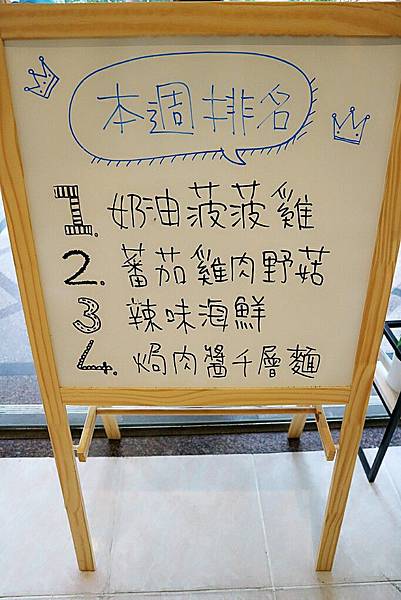 本週排名
1. 奶油菠菠雞
2. 蕃茄雞肉野菇
3 辣味海鮮
4. 焗肉醬千層麵